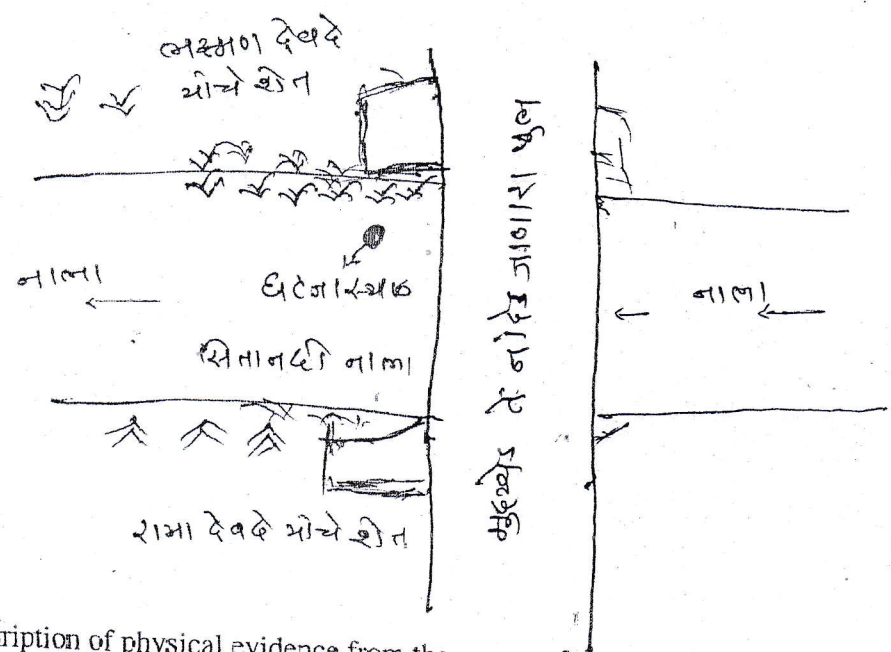 लक्ष्मण देवदे
यांचे शेत
नाला
घटनास्थळ
सितानदी नाला
रामा देवदे यांचे शेत
मुदखेड ते नांदेड जाणारा पुल
नाला
ription of physical evidence from the